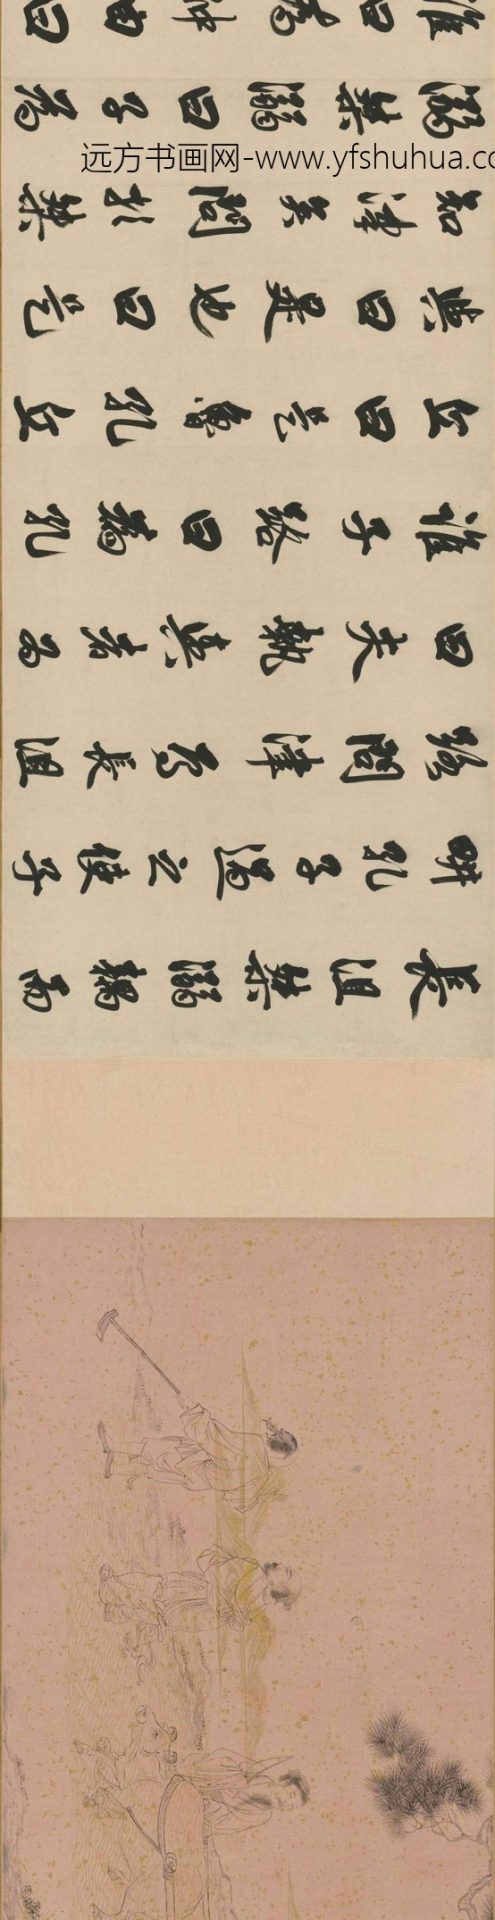 長沮桀溺耦而
畊孔子過之使子
路問津焉長沮
曰夫執輿者為
誰子路曰為孔
丘曰是魯孔丘
與曰是也曰是
知津矣問於桀
溺桀溺曰子為
誰曰為仲由曰
远方书画网-www.yfshuhua.co